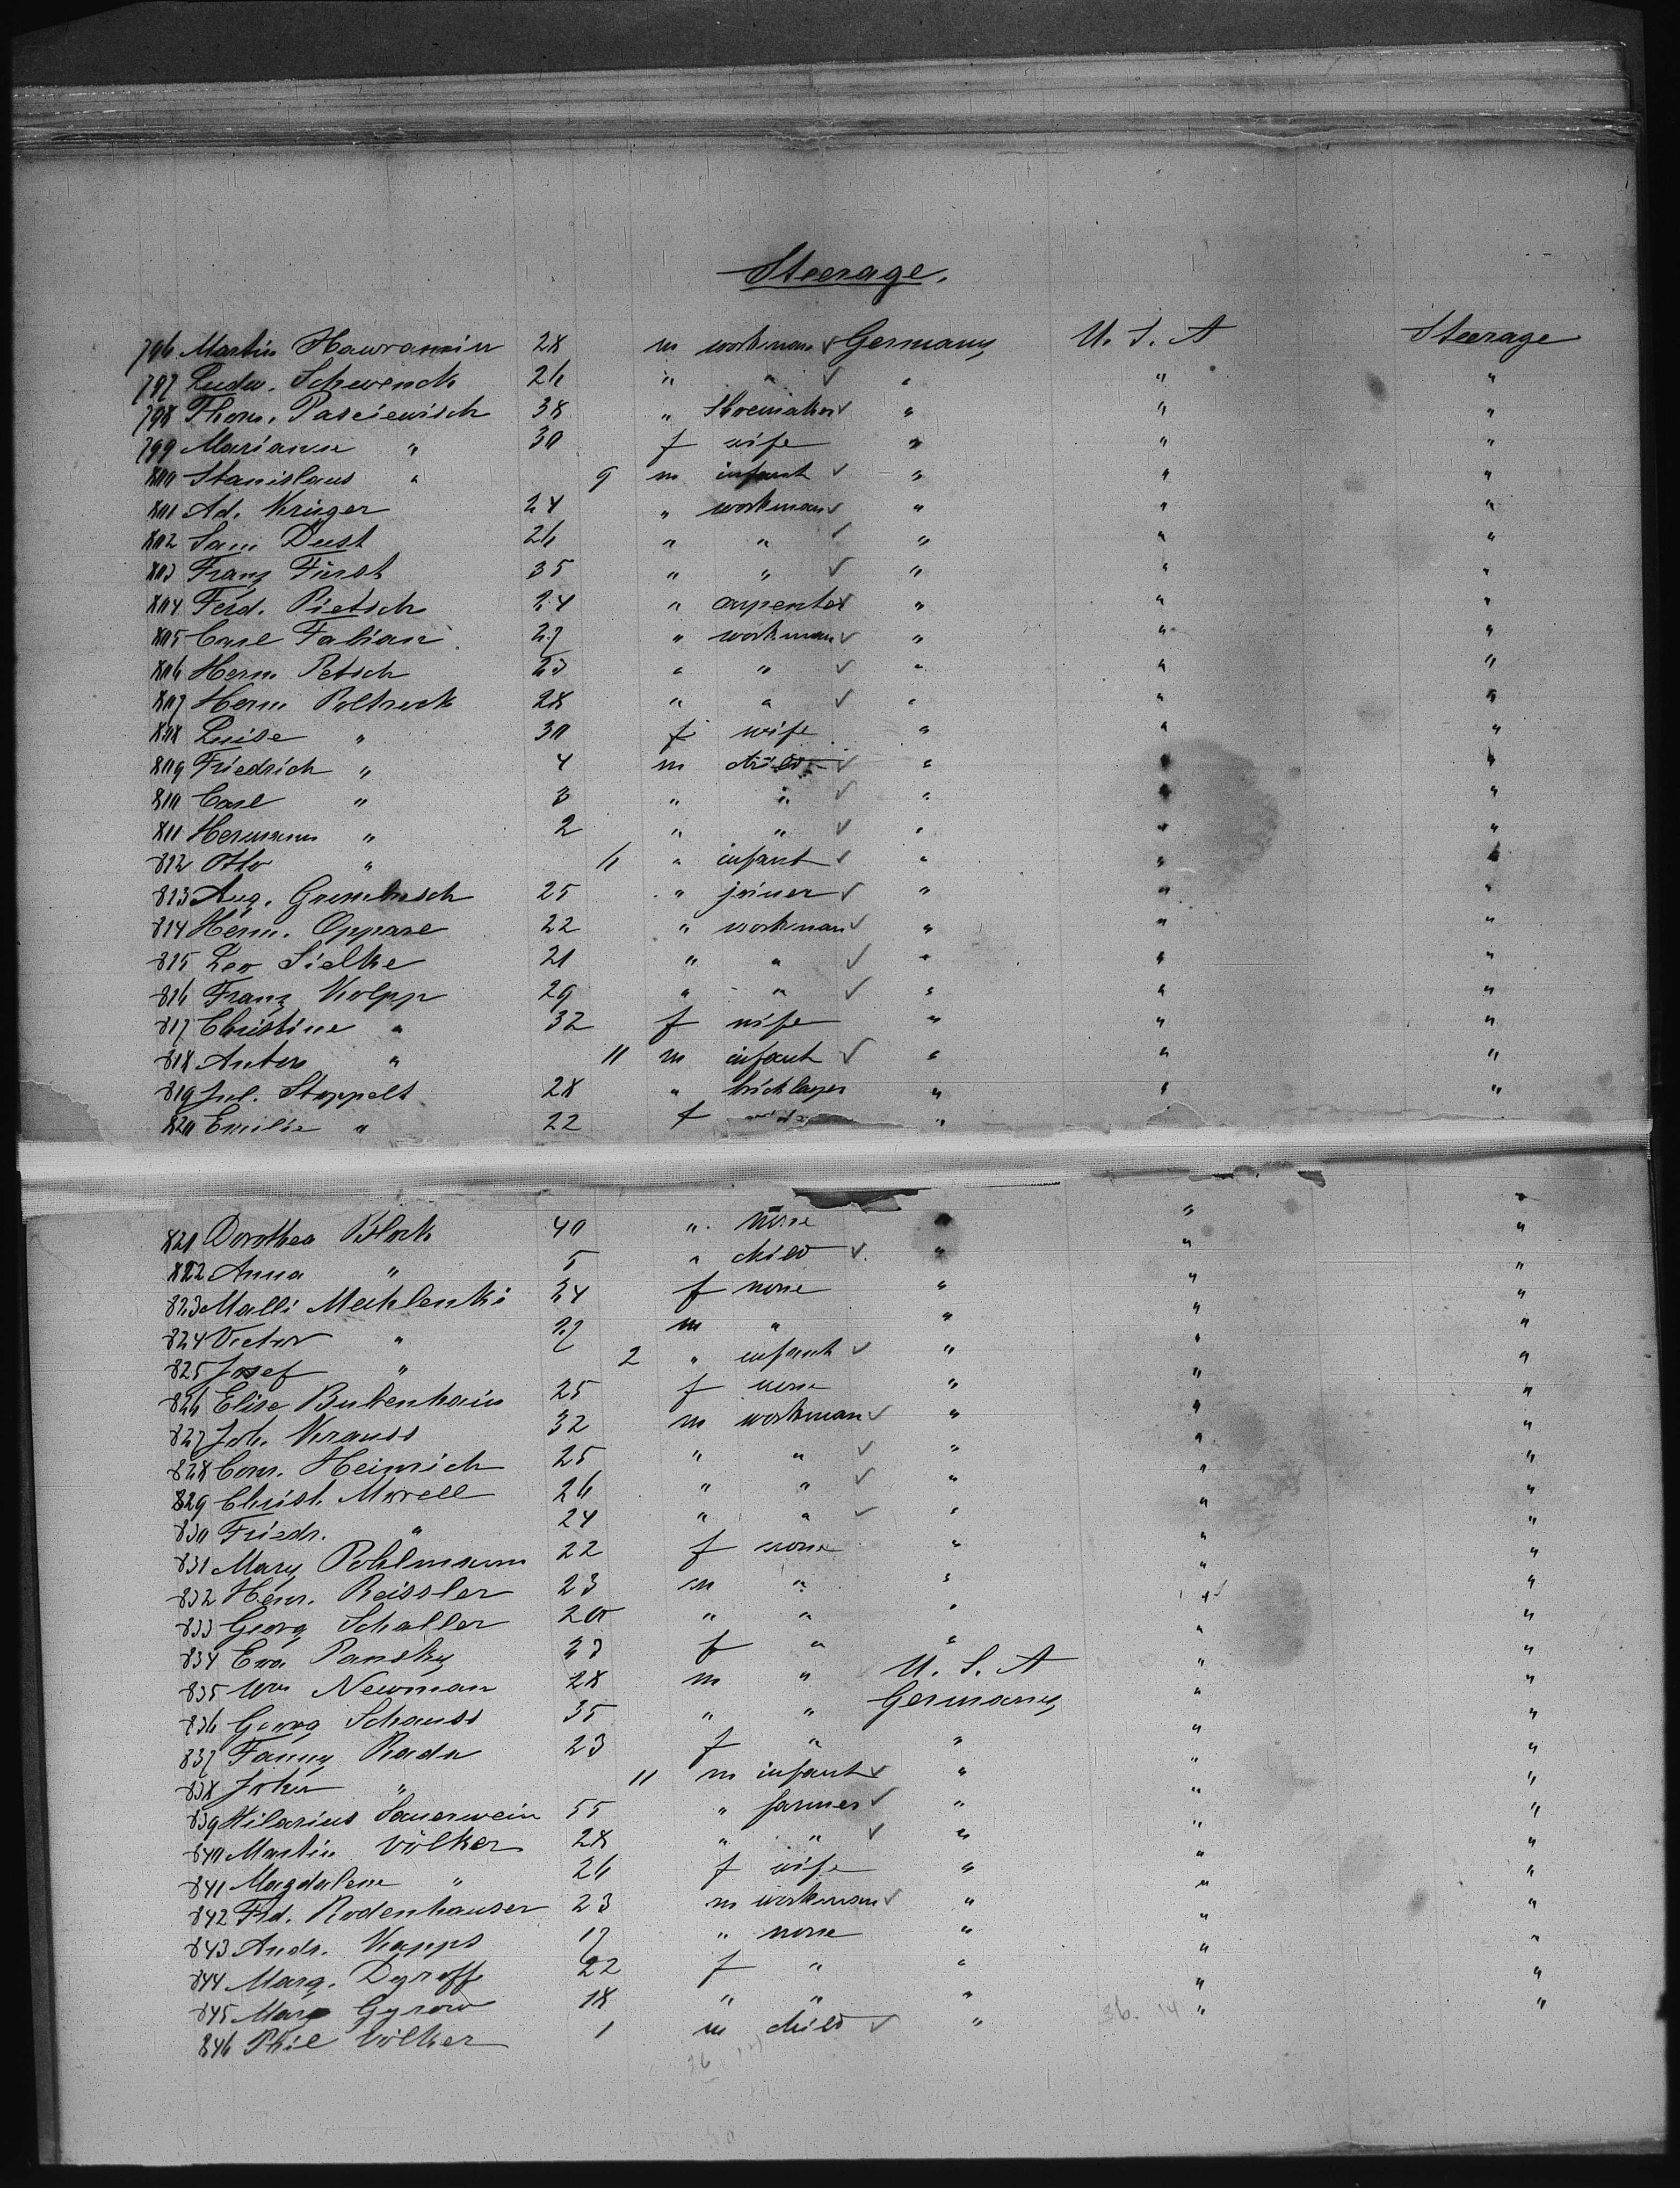 Steerage.
796 Martin Hawranin 28 m workman ✓ Germany U. S. A Steerage
797 Ludw. Schwenck 26 " " ✓ " " "
798 Thom. Pasciewisch 38 " Shoemaker ✓ " " "
799 Marianne " 30 f wife " " "
800 Stanislaus " 9 m infant ✓ " " "
801 Ad. Krüger 24 " workman ✓ " " "
802 Sam Dust 26 " " ✓ " " "
803 Franz Fürst 35 " " ✓ " " "
804 Ferd. Pietsch 24 " carpenter ✓ " " "
805 Carl Fabian 27 " workman ✓ " " "
806 Herm. Petsch 23 " " ✓ " " "
807 Herm Poltrock 28 " " ✓ " " "
808 Luise " 30 f wife " " "
809 Friedrich " 4 m child ✓ " " "
810 Carl " 3 " " ✓ " " "
811 Hermann " 2 " " ✓ " " "
812 Otto " 6 " infant ✓ " " "
813 Aug. Grumbusch 25 " joiner ✓ " " "
814 Herm. Oppare 22 " workman ✓ " " "
815 Leo Sielke 21 " " ✓ " " "
816 Franz Kolpp 29 " " ✓ " " "
817 Christine " 32 f wife " " "
818 Anton " 11 m infant ✓ " " "
819 Jul. Stoppelt 28 " bricklayer " " "
820 Emilie " 22 f "
821 Dorothea Block 40 " none " " "
822 Anna " 5 " child ✓ " " "
823 Malli Mahlenki 24 f none " " "
824 Victor " 27 m " " " "
825 Josef " 2 " infant ✓ " " "
826 Elise Butenhain 25 f none " " "
827 Joh. Krauss 32 m workman ✓ " " "
828 Conr. Heinrich 25 " " ✓ " " "
829 Christ. Morell 26 " " ✓ " " "
830 Friedr. " 24 " " ✓ " " "
831 Mary Pohlmann 22 f none " " "
832 Henr. Reissler 23 m " " " "
833 Georg Schaller 20 " " " " "
834 Eva Pansky 23 f " " " "
835 Wm Newman 28 m " U. S. A " "
836 Georg Schauss 35 " " Germany " "
837 Fanny Rada 23 f " " " "
838 John " 11 m infant ✓ " " "
839 Hilarius Sauerwein 55 " farmer ✓ " " "
840 Martin Völker 28 " " ✓ " " "
841 Magdalene " 26 f wife " " "
842 Frd. Rodenhauser 23 m workman ✓ " " "
843 Andr. Kapps 17 " none " " "
844 Marg. Dyroff 22 f " " " "
845 Marg Gyrow 18 " " " " "
846 Phil Völker 1 m child ✓ "
36. 14